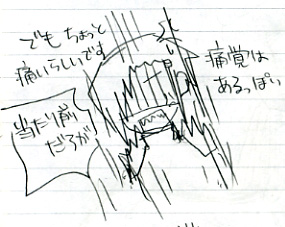 でもちょっと
痛いらしいです
痛覚は
あるっぽい
当たり前
だろが